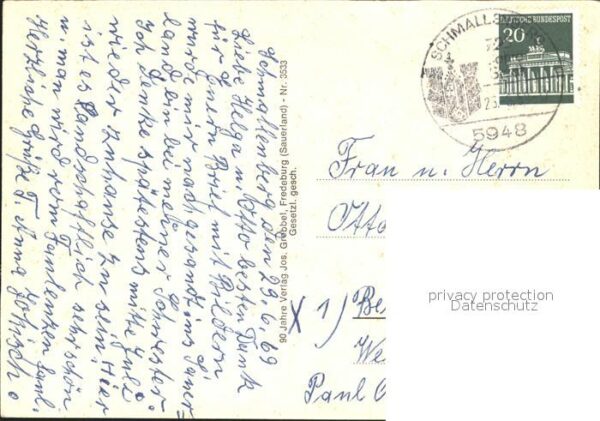 Schmallenberg, den 29.6.69
Liebe Helga u. Otto besten Dank
für Euren Brief mit Bildern
wurde mir nachgesandt ins Sauer=
land ein bei meiner Schwester.
Ich denke spätestens mitte Juli
wieder Zuhause zu sein. Hier
ist es Landschaftlich sehr schön
u. man wird vom Faulenzen faul.
Herzliche Grüße T. Anna
90 Jahre Verlag Jos. Grobbel, Fredeburg (Sauerland) - Nr. 3533
Gesetzl. gesch.
SCHMALL
5948
DEUTSCHE BUNDESPOST
20
Frau u. Herrn
Otto
X 1) Be
We
Paul
privacy protection
Datenschutz